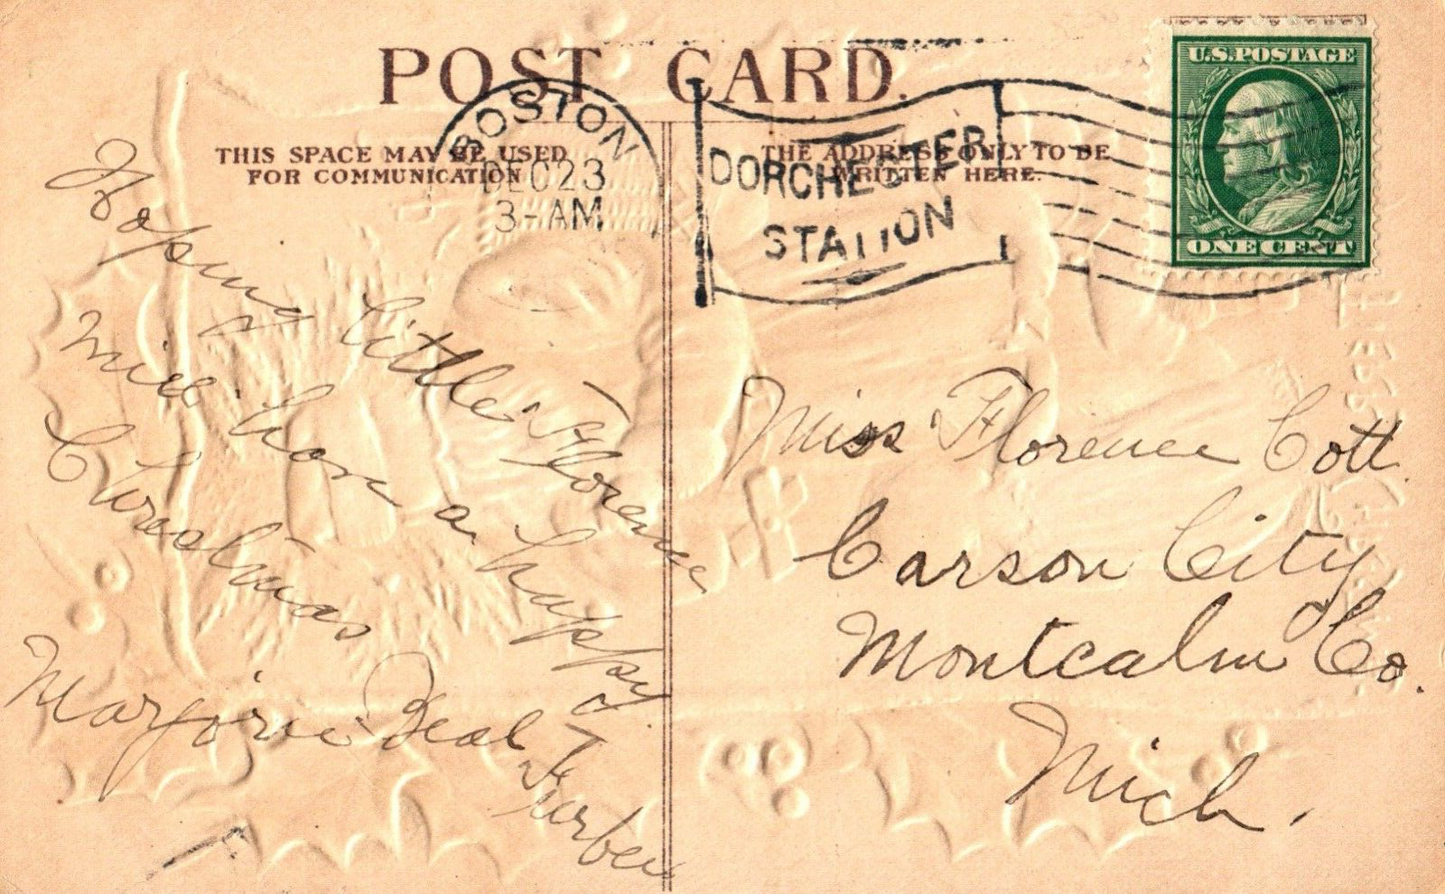 POST CARD.
THIS SPACE MAY BE USED
FOR COMMUNICATION
THE ADDRESS ONLY TO BE
WRITTEN HERE.
BOSTON
DEC 23
3-AM
DORCHESTER
STATION
U.S. POSTAGE
ONE CENT
Hoping little Florence
will have a happy
Christmas
Marjorie Beal Furber
Miss Florence Cott
Carson City
Montcalm Co.
Mich.